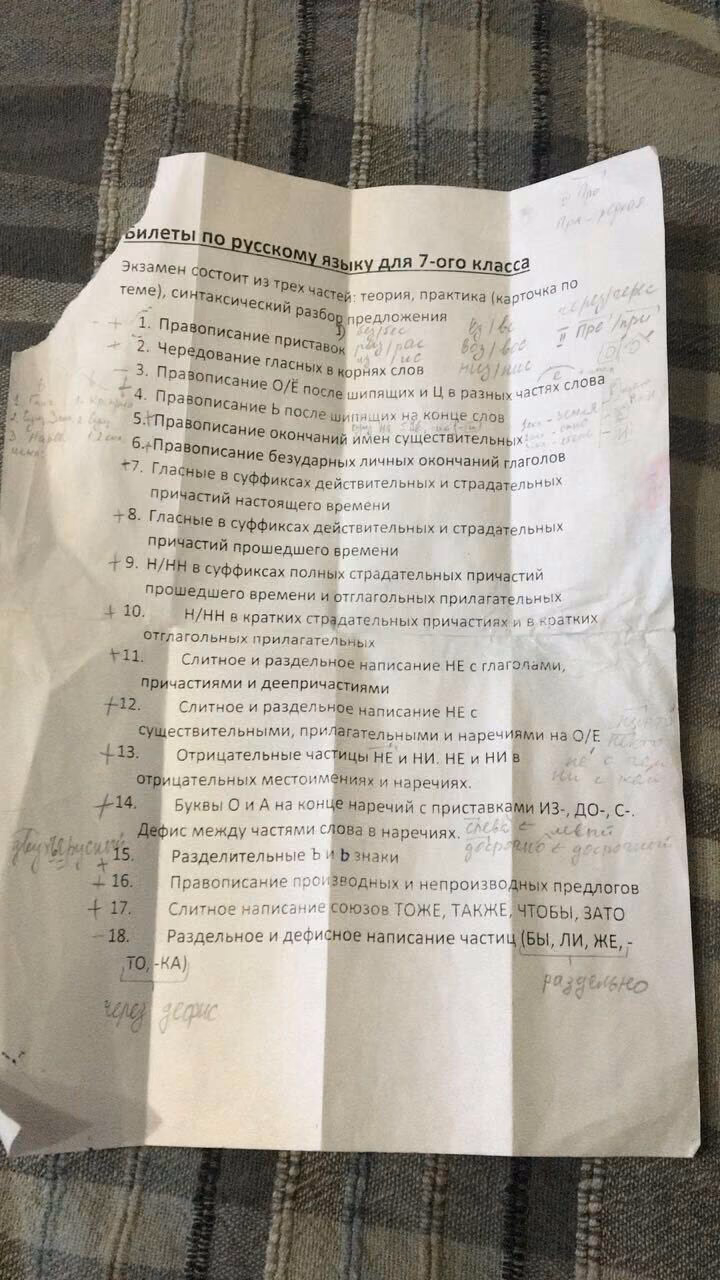 Билеты по русскому языку для 7-ого класса
Экзамен состоит из трех частей: теория, практика (карточка по
теме), синтаксический разбор предложения
+ 1. Правописание приставок
без/бес вз/вс через/черес
+ 2. Чередование гласных в корнях слов
раз/рас воз/вос II Про/при
из/ис низ/нис
3. Правописание О/Ё после шипящих и Ц в разных частях слова
4. Правописание Ь после шипящих на конце слов
5.+ Правописание окончаний имен существительных
6.+ Правописание безударных личных окончаний глаголов
+7. Гласные в суффиксах действительных и страдательных
причастий настоящего времени
+8. Гласные в суффиксах действительных и страдательных
причастий прошедшего времени
+ 9. Н/НН в суффиксах полных страдательных причастий
прошедшего времени и отглагольных прилагательных
+ 10. Н/НН в кратких страдательных причастиях и в кратких
отглагольных прилагательных
+11. Слитное и раздельное написание НЕ с глаголами,
причастиями и деепричастиями
+12. Слитное и раздельное написание НЕ с
существительными, прилагательными и наречиями на О/Е
+13. Отрицательные частицы НЕ и НИ. НЕ и НИ в
отрицательных местоимениях и наречиях.
+14. Буквы О и А на конце наречий с приставками ИЗ-, ДО-, С-.
Дефис между частями слова в наречиях.
слева ← левый
досрочно ← досрочный
двухъярусной
+ 15. Разделительные Ъ и Ь знаки
+ 16. Правописание производных и непроизводных предлогов
+ 17. Слитное написание союзов ТОЖЕ, ТАКЖЕ, ЧТОБЫ, ЗАТО
- 18. Раздельное и дефисное написание частиц (БЫ, ЛИ, ЖЕ, -
ТО, -КА)
раздельно
через дефис